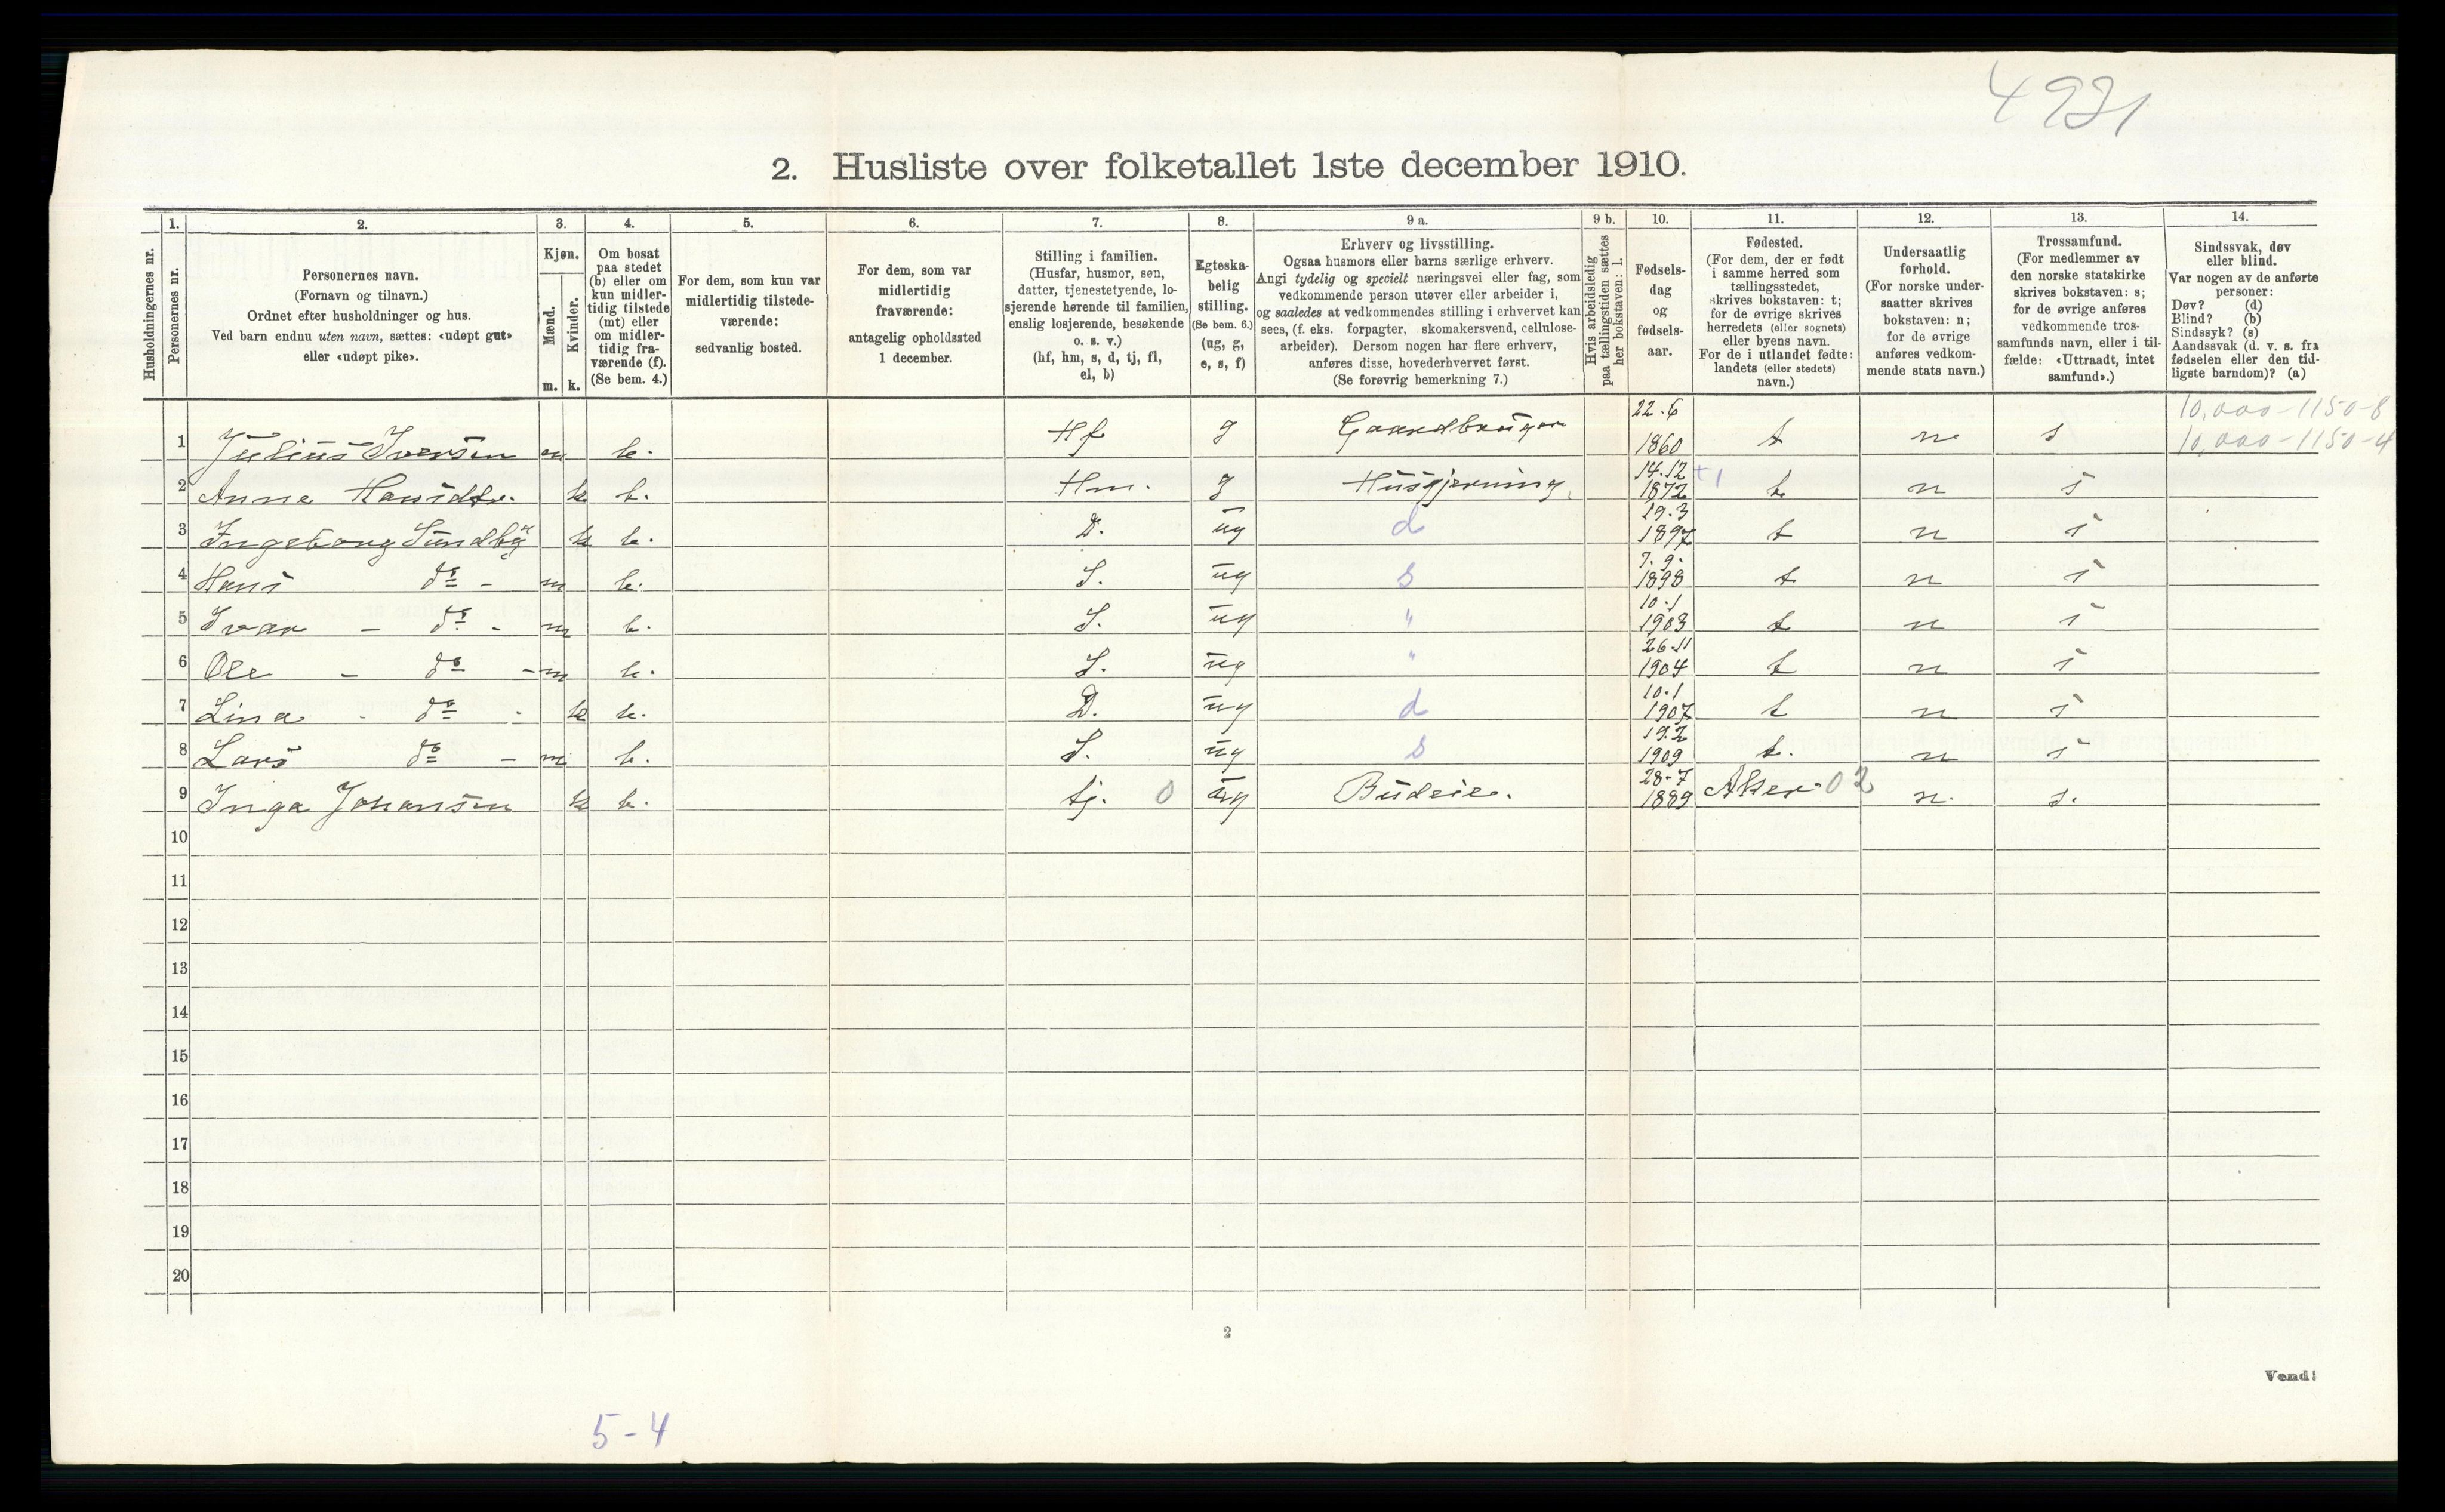 4931
2. Husliste over folketallet 1ste december 1910.
Husholdningernes nr.
1.
Personernes nr.
2.
Personernes navn.
(Fornavn og tilnavn.)
Ordnet efter husholdninger og hus.
Ved barn endnu uten navn, sættes: «udøpt gut»
eller «udøpt pike».
3.
Kjøn.
Mænd.
Kvinder.
m. k.
4.
Om bosat
paa stedet
(b) eller om
kun midler-
tidig tilstede
(mt) eller
om midler-
tidig fra-
værende (f).
(Se bem. 4.)
5.
For dem, som kun var
midlertidig tilstede-
værende:
sedvanlig bosted.
6.
For dem, som var
midlertidig
fraværende:
antagelig opholdssted
1 december.
7.
Stilling i familien.
(Husfar, husmor, søn,
datter, tjenestetyende, lo-
sjerende hørende til familien,
enslig losjerende, besøkende
o. s. v.)
(hf, hm, s, d, tj, fl,
el, b)
8.
Egteska-
belig
stilling.
(Se bem. 6.)
(ug, g,
e, s, f)
9 a.
Erhverv og livsstilling.
Ogsaa husmors eller barns særlige erhverv.
Angi tydelig og specielt næringsvei eller fag, som
vedkommende person utøver eller arbeider i,
og saaledes at vedkommendes stilling i erhvervet kan
sees, (f. eks. forpagter, skomakersvend, cellulose-
arbeider). Dersom nogen har flere erhverv,
anføres disse, hovederhvervet først.
(Se forøvrig bemerkning 7.)
9 b.
Hvis arbeidsledig
paa tællingstiden sættes
her bokstaven: l.
10.
Fødsels-
dag
og
fødsels-
aar.
11.
Fødested.
(For dem, der er født
i samme herred som
tællingsstedet,
skrives bokstaven: t;
for de øvrige skrives
herredets (eller sognets)
eller byens navn.
For de i utlandet fødte:
landets (eller stedets)
navn.)
12.
Undersaatlig
forhold.
(For norske under-
saatter skrives
bokstaven: n;
for de øvrige
anføres vedkom-
mende stats navn.)
13.
Trossamfund.
(For medlemmer av
den norske statskirke
skrives bokstaven: s;
for de øvrige anføres
vedkommende tros-
samfunds navn, eller i til-
fælde: «Uttraadt, intet
samfund».)
14.
Sindssvak, døv
eller blind.
Var nogen av de anførte
personer:
Døv? (d)
Blind? (b)
Sindssyk? (s)
Aandssvak (d. v. s. fra
fødselen eller den tid-
ligste barndom)? (a)
10,000-1150-8
1 Julius Iversen m b. Hf g Gaardbruger 22.6 1860 t n s 10,000-1150-4
2 Anne Hansdtr. k b. Hm. g Husgjerning. 14.12 1872 +1 t n s
3 Ingeborg Sundby k b. D. ug d 29.3 1897 t n s
4 Hans do - m b. S. ug s 7.9. 1898 t n s
5 Ivar - do - m b. S. ug " 10.1 1903 t n s
6 Ole - do - m b. S. ug " 26.11 1904 t n s
7 Lina - do - k b. D. ug d 10.1 1907 t n s
8 Lars do - m b. S. ug s 19.2 1909 t. n s
9 Inga Johansen k b. tj. 0 ug Budeie. 28-7 1889 Aker 02 n. s.
10
11
12
13
14
15
16
17
18
19
20
2
Vend!
5-4